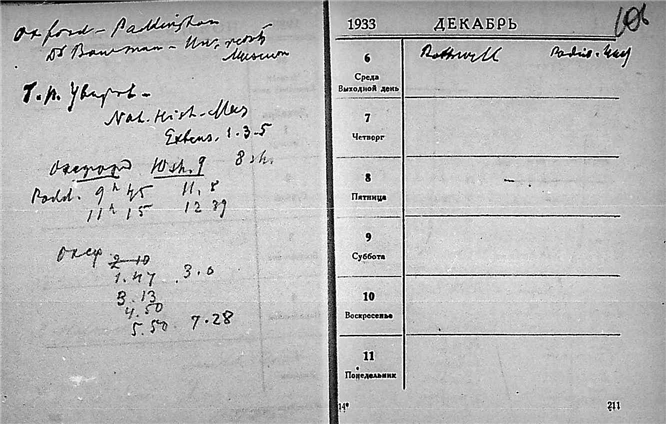 Oxford - Paddington
Dr Bowman - Univ.
Museum
Nat. Hist. Mus
Extens. 1.3.5
Оксфорд 10 sh. 9 8 sh.
Padd. 9h 45 11, 8
11h 15 12 39
Оксф 2-10
1.47 3.0
3.13
4.50
5.50 7.28
106
1933 ДЕКАБРЬ
6
Среда
Выходной день
Rothwell
7
Четверг
8
Пятница
9
Суббота
10
Воскресенье
11
Понедельник
14*
211